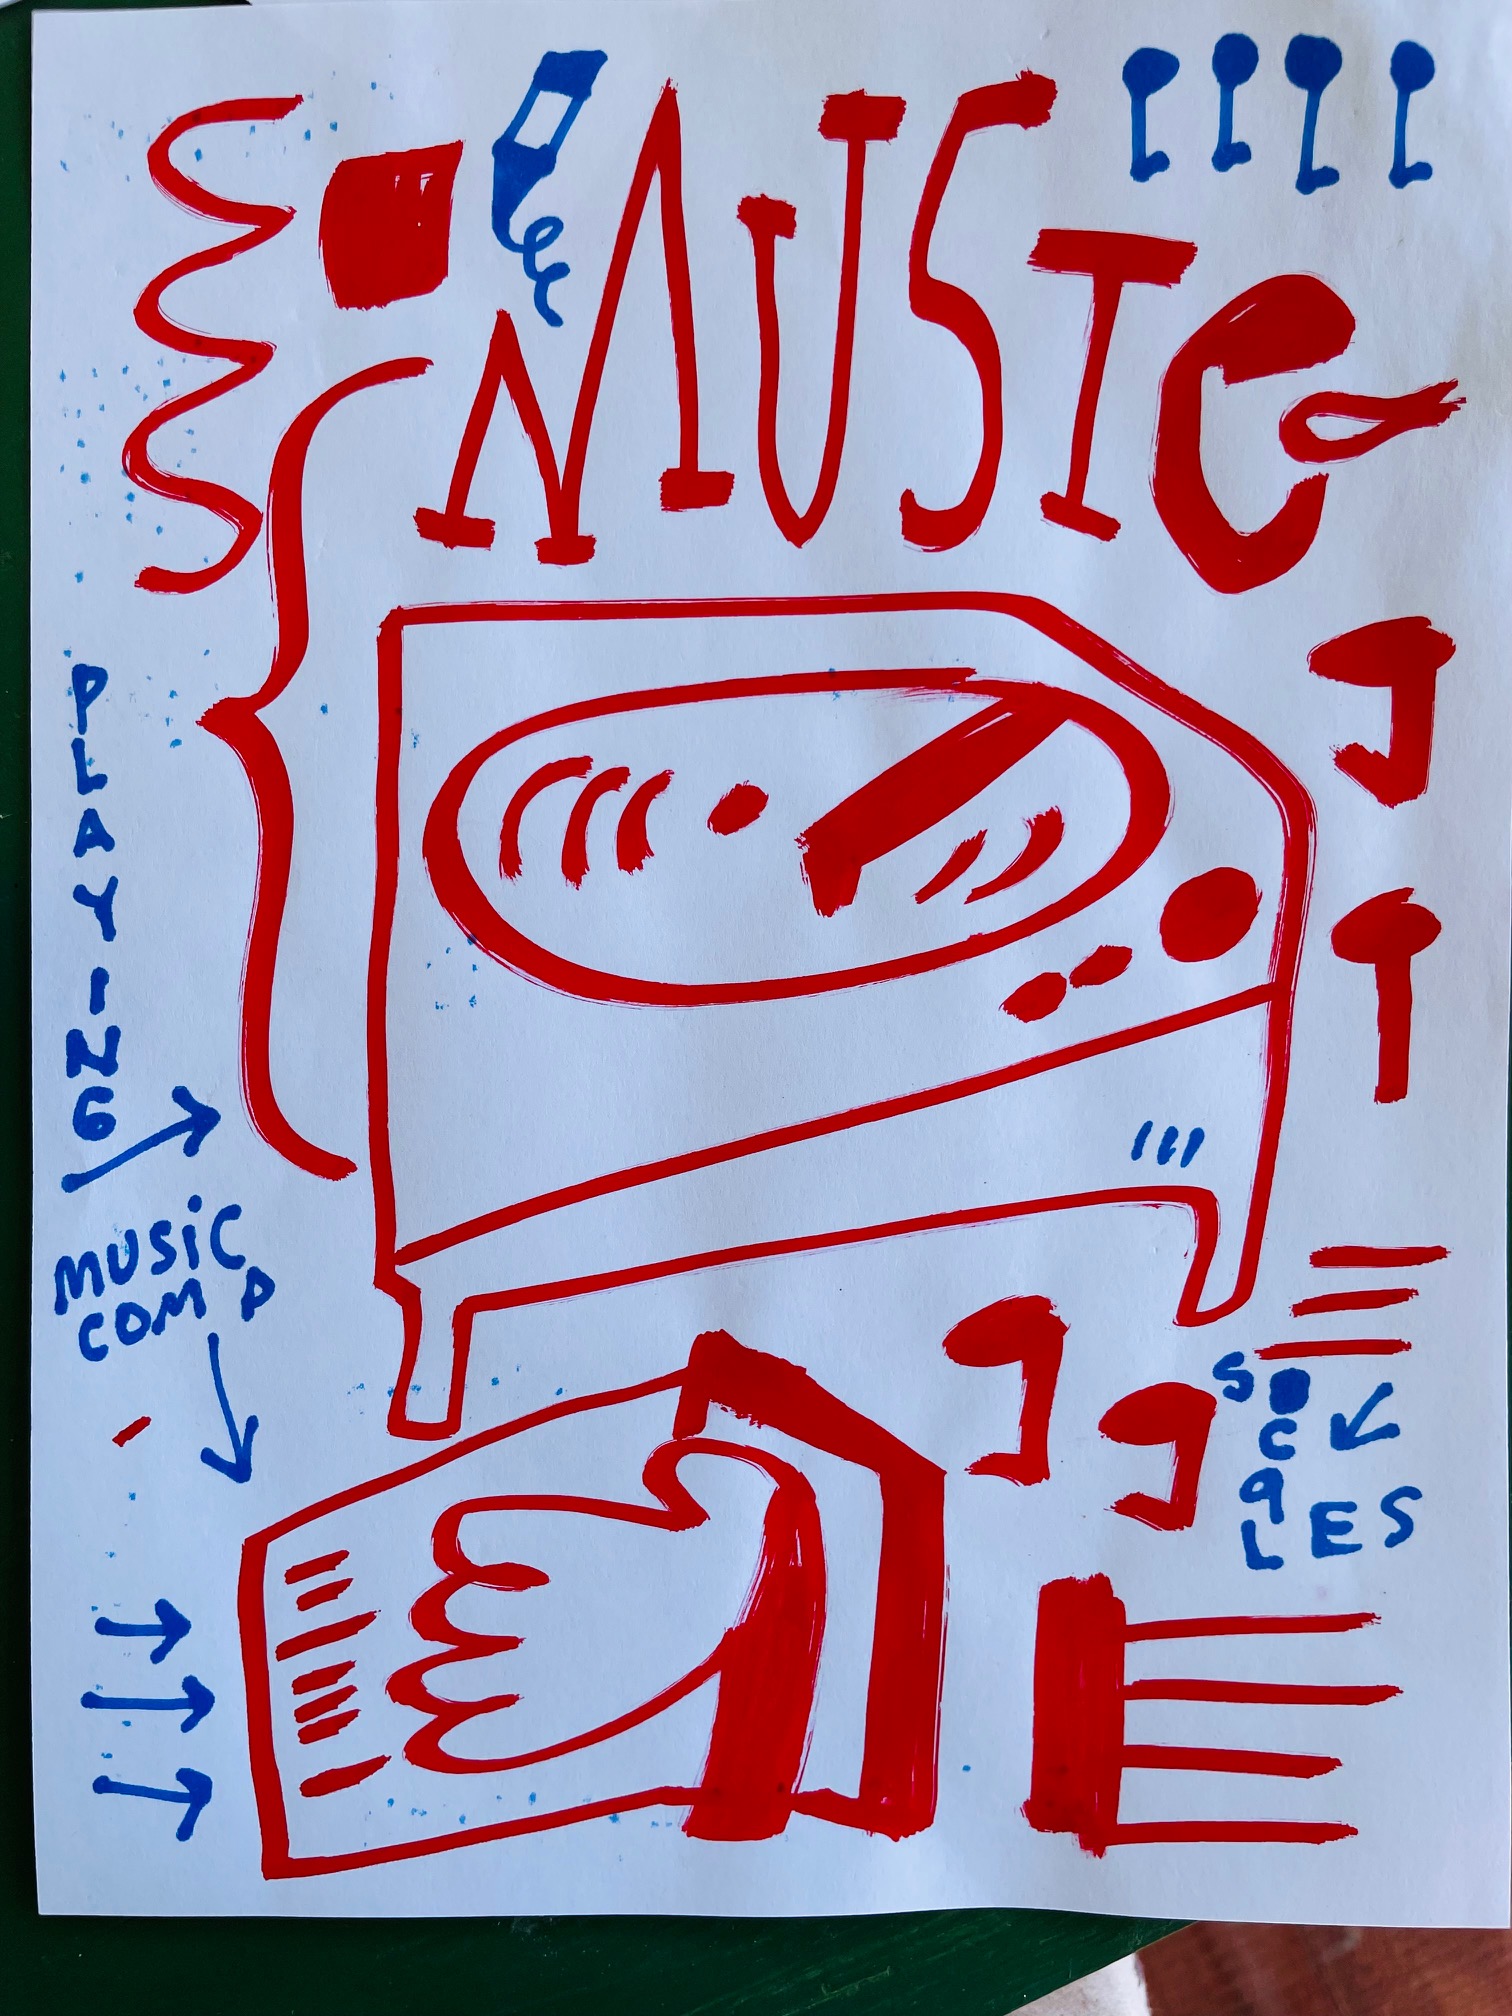 MUSIC
PLAYING
MUSIC
COMP
SCALES